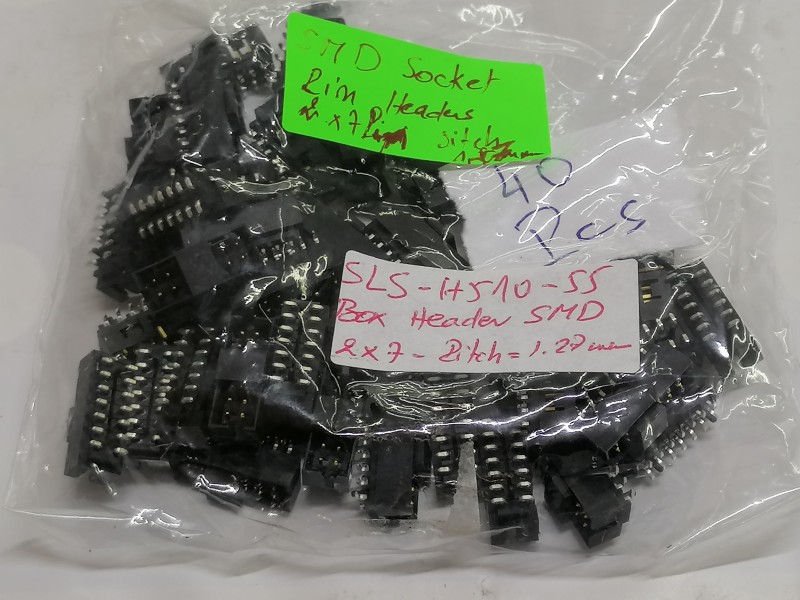 SMD Socket
Pin Headers
2x7Pin Pitch
1.27mm
40
Pcs
SLS-H510-SS
Box Header SMD
2x7 - Pitch=1.27mm